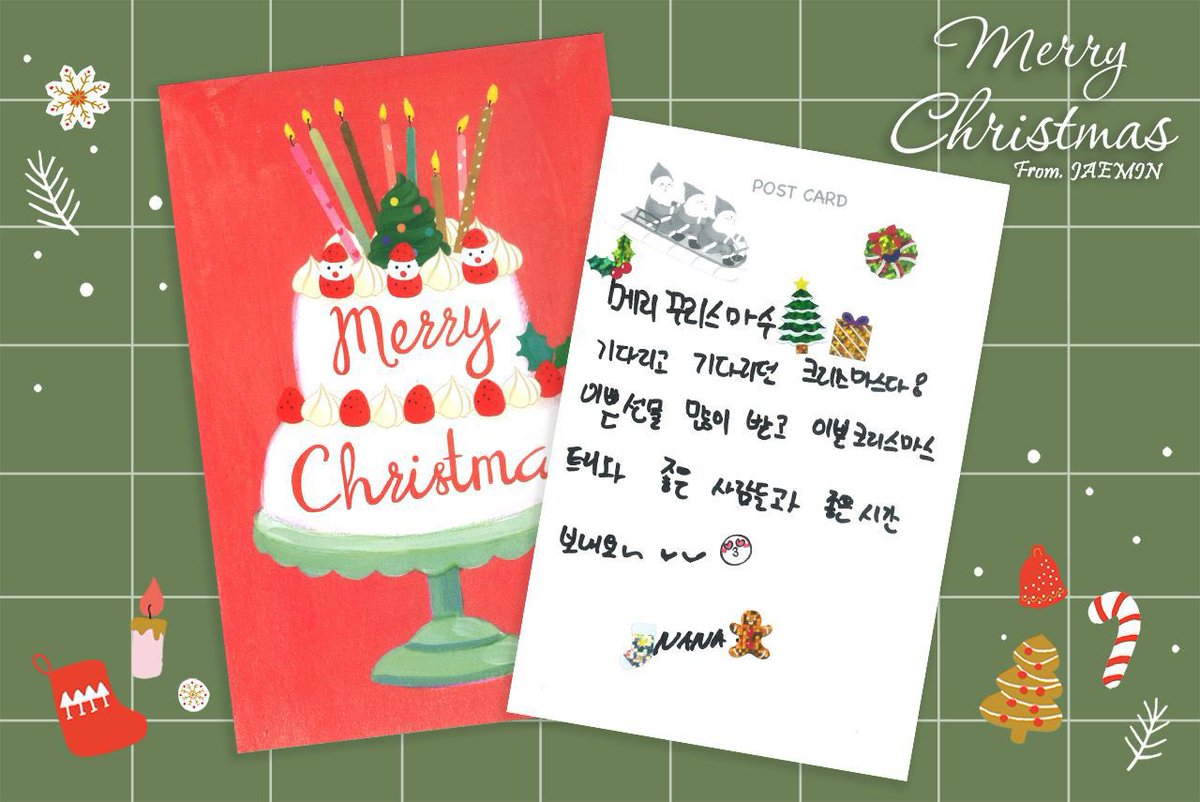 Merry
Christmas
From. JAEMIN
Merry
Christma
POST CARD
메리 꾸리스마수
기다리고 기다리던 크리스마스다용
이쁜 선물 많이 받고 이번 크리스마스
트니와 좋은 사람들과 좋은 시간
보내요~
NANA